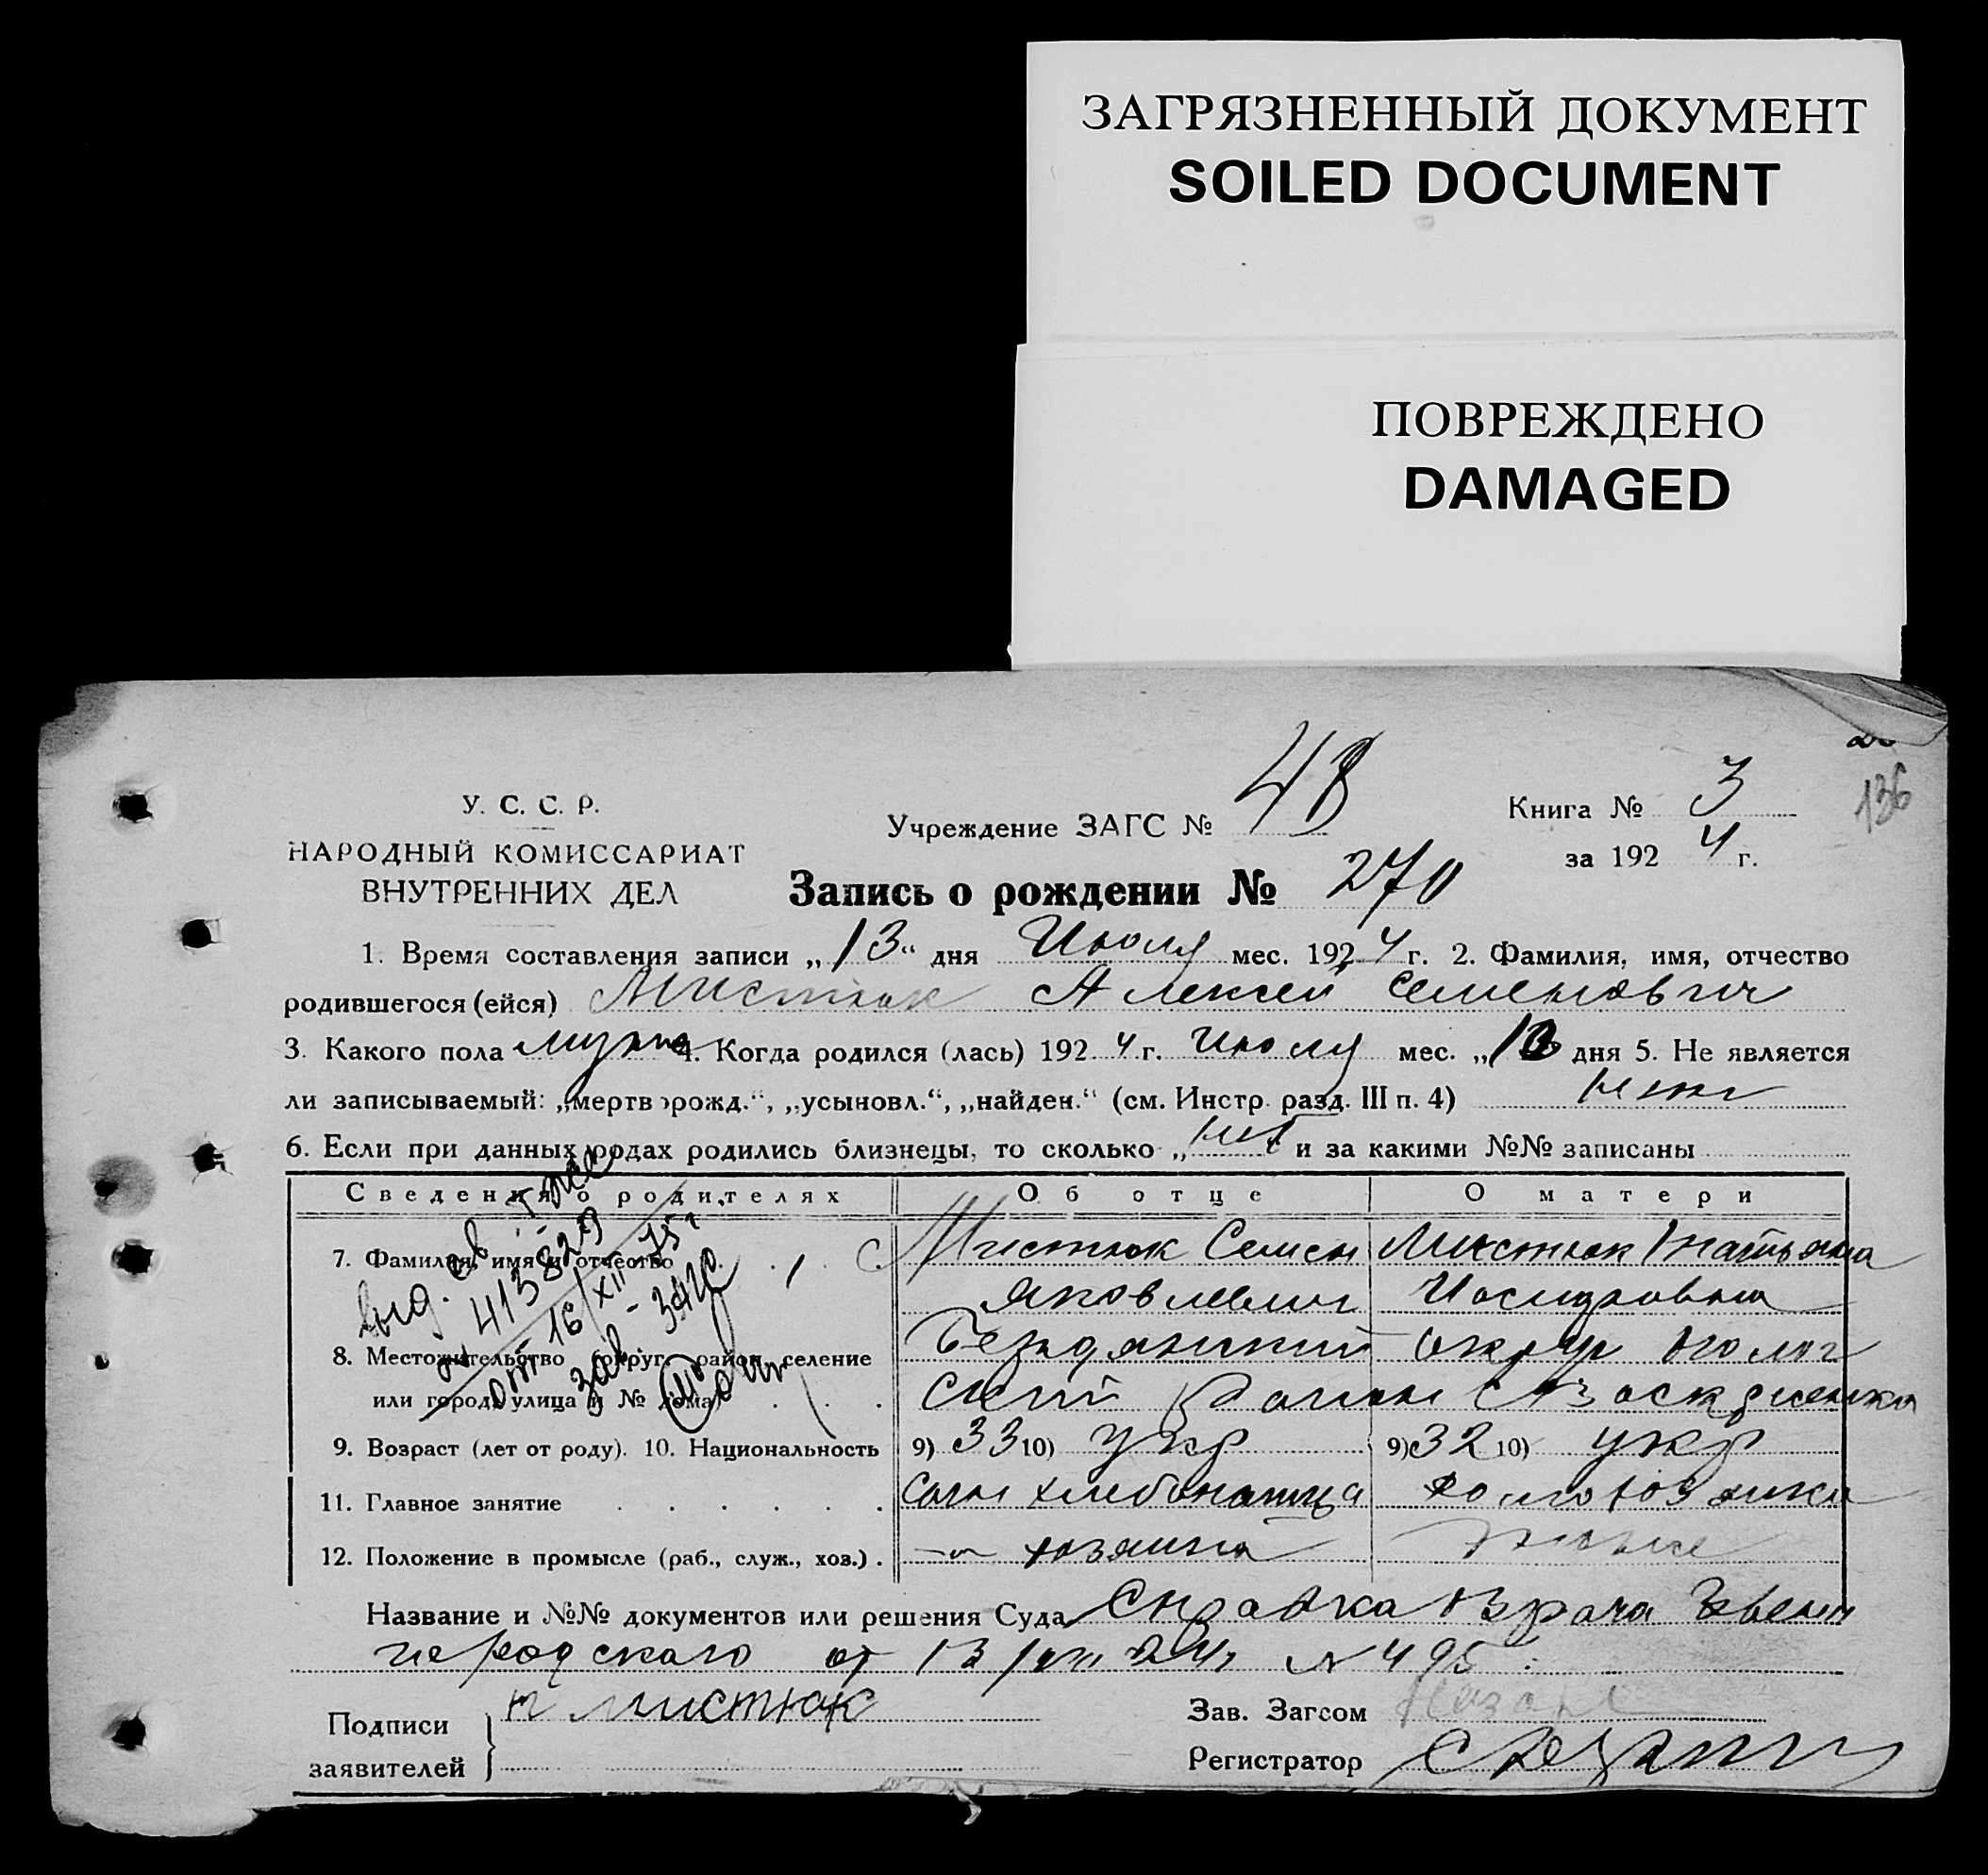 ЗАГРЯЗНЕННЫЙ ДОКУМЕНТ
SOILED DOCUMENT
ПОВРЕЖДЕНО
DAMAGED
136
У. С. С. Р.
НАРОДНЫЙ КОМИССАРИАТ
ВНУТРЕННИХ ДЕЛ
Учреждение ЗАГС № 48
Книга № 3
за 1924 г.
Запись о рождении № 270
1. Время составления записи „13“ дня Июля мес. 1924 г. 2. Фамилия, имя, отчество
родившегося (ейся) Мистюк Алексей Семенович
3. Какого пола мужс 4. Когда родился (лась) 1924 г. Июля мес. „ дня 5. Не является
ли записываемый: „мертворожд.“, „усыновл.“, „найден.“ (см. Инстр. разд. III п. 4)
6. Если при данных родах родились близнецы, то сколько „нет и за какими №№ записаны
Сведения о родителях Об отце О матери
7. Фамилия, имя и отчество Мистюк Семен Мистюк Татьяна
Яковлевич
8. Местожительство (округ, район, селение Бердянский округ
или город, улица и № дома)
9. Возраст (лет от роду). 10. Национальность 9) 33 10) укр 9) 32 10) укр
11. Главное занятие
12. Положение в промысле (раб., служ., хоз.) хозяин
Название и №№ документов или решения Суда Справка Врача
городского от 13 24 N 495
Подписи заявителей Мистюк
Зав. Загсом
Регистратор
выд. св.
413829
от 16/XII 75 г
зав. загс